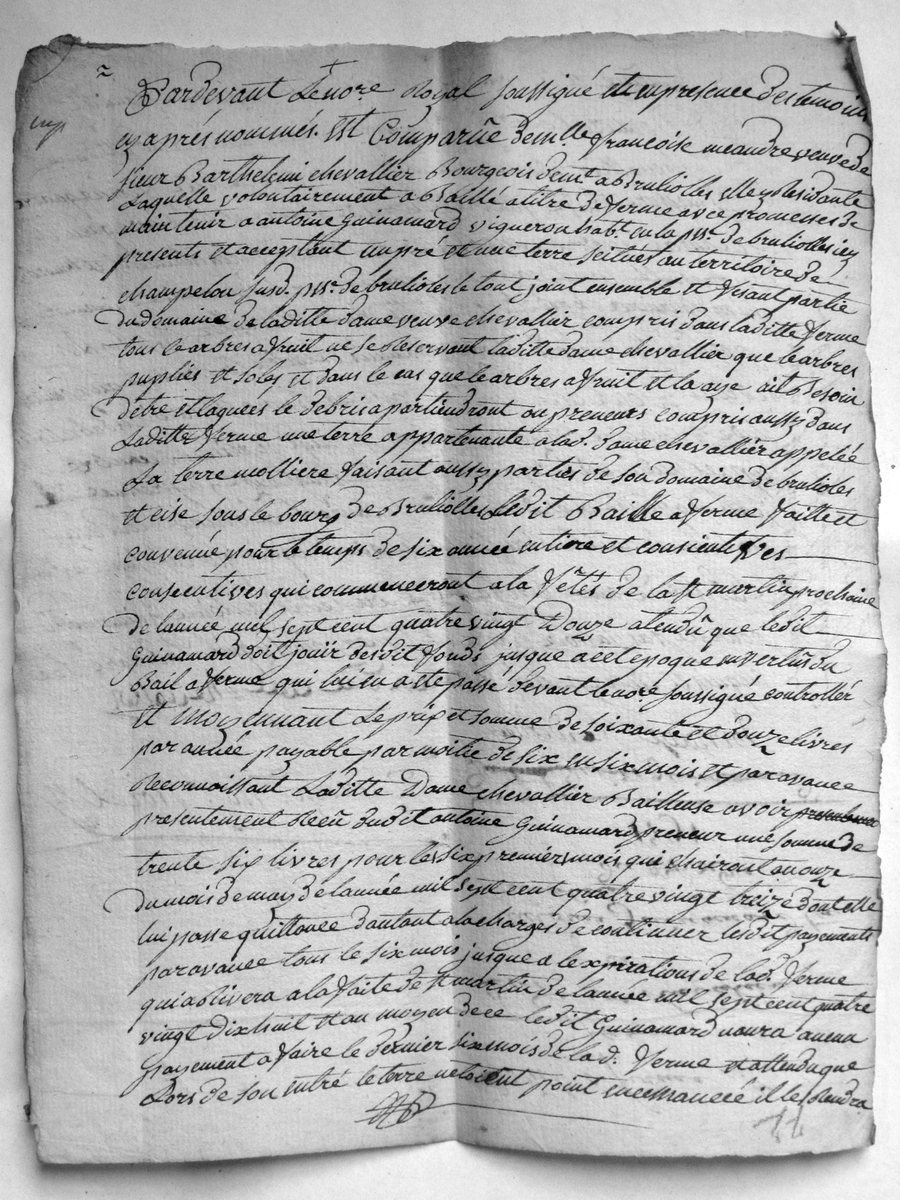 Pardevant Le nore Royal soussigné et en presence des temoins
cy après nommés. Est Comparüe demlle françoise meandre veuve de
sieur Barthelemi chevallier Bourgeois demt a Brulliolles elle y Residante
Laquelle volontairement a Baillé a titre de ferme avec promesses de
maintenir a antoine Guinamard vigneron habt en la psse de brulliolles icy
presents et acceptant un pré et une terre scitués au territoire de
champelou susd. psse de brulioles le tout joint ensemble et fesant partie
du domaine de laditte dame veuve chevallier compris dans laditte ferme
tous le arbres a fruit ne se Reservant laditte dame chevallier que le arbres
puplies et soles et dans le cas que le arbres a fruit et la aye ait Besoin
detre etlaguées le debris apartiendront au preneurs compris aussy dans
Laditte ferme une terre appartenante a lad. dame chevallier appelée
La terre molliere faisant aussy parties de son domaine de brulioles
et cise sous le bourg de Brulliolles Ledit Baille a ferme faitte et
convenüe pour le temps de six année entiere et consientives
consecutives qui commenceront a la fêtés de la st martin prochaine
de lannée mil sept cent quatre vingt Douze atendû que ledit
Guinamard doit jouir desdit fonds jusque a cet epoque en vertüs du
Bail a ferme qui lui en a etté passé devant le nore soussigné controllér
et moyennant Le prix et somme de soixante et douze livres
par année payable par moitié de six en six mois et par avance
Reconnoissant Laditte Dame chevallier Bailleuse avoir
presentement Reçû dudit antoine Guinamard preneur une somme de
trente six livres pour les six premiers mois qui chairont au onze
du mois de may de lannée mil sept cent quatre vingt treize dont elle
lui passe quittence dautant a la charges de continuer lesdit payements
par avance tous le six mois jusque a lexpirations de lad. ferme
qui arivera a la faite de st martin de lannée mil sept cent quatre
vingt dix huit et au moyen de ce ledit Guinamard naura aucun
payement a faire le dernier six mois de la d. ferme et attendu que
Lors de son entré le terre netoient point ensemancéé il les Rendra